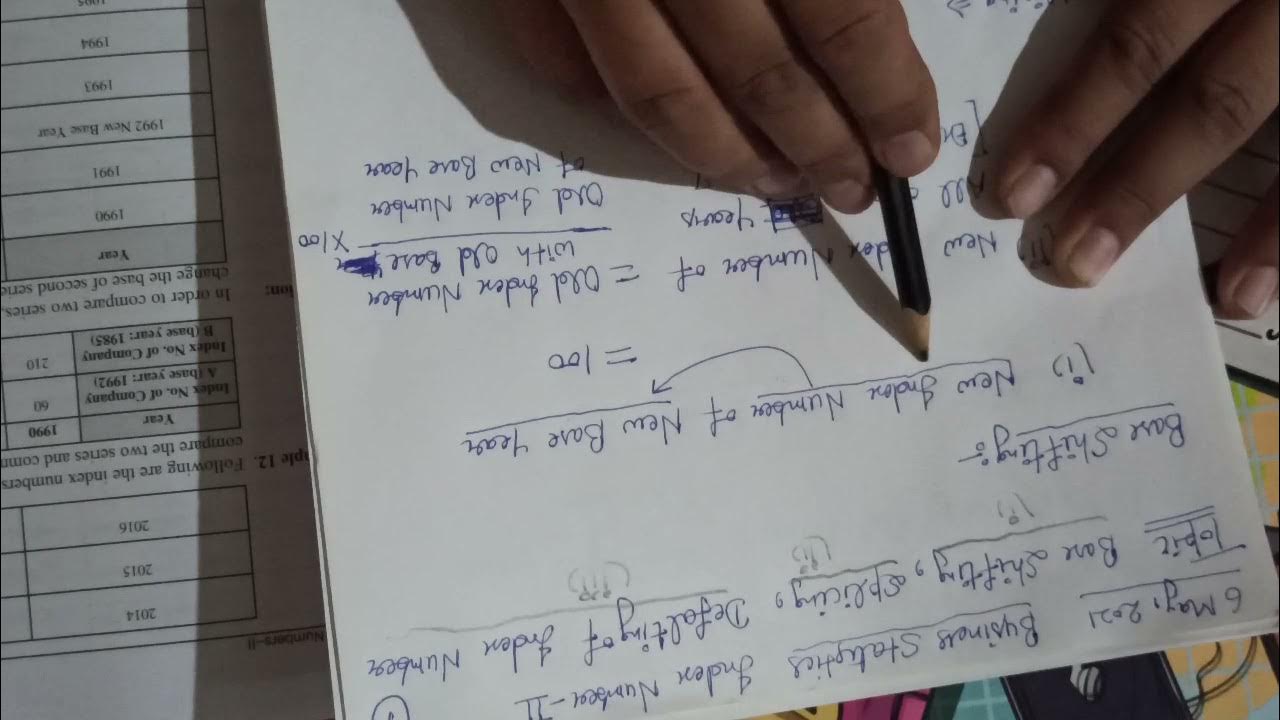 6 May, 2021 Business Statistics Index Number-II
Topic Base Shifting, Splicing, Defalting of Index Number
(i) (ii) (iii)
Base Shifting:-
(i) New Index Number of New Base Year
= 100
(ii) New Index Number of = Old Index Number
with Old Base
X100
All Years
Old Index Number
of New Base Year
Numbers-II
2014
2015
2016
Following are the index numbers
compare the two series and comm
Year 1990
Index No. of Company
A (base year: 1992) 60
Index No. of Company
B (base year: 1985) 210
In order to compare two series,
change the base of second serie
Year
1990
1991
1992 New Base Year
1993
1994
1995